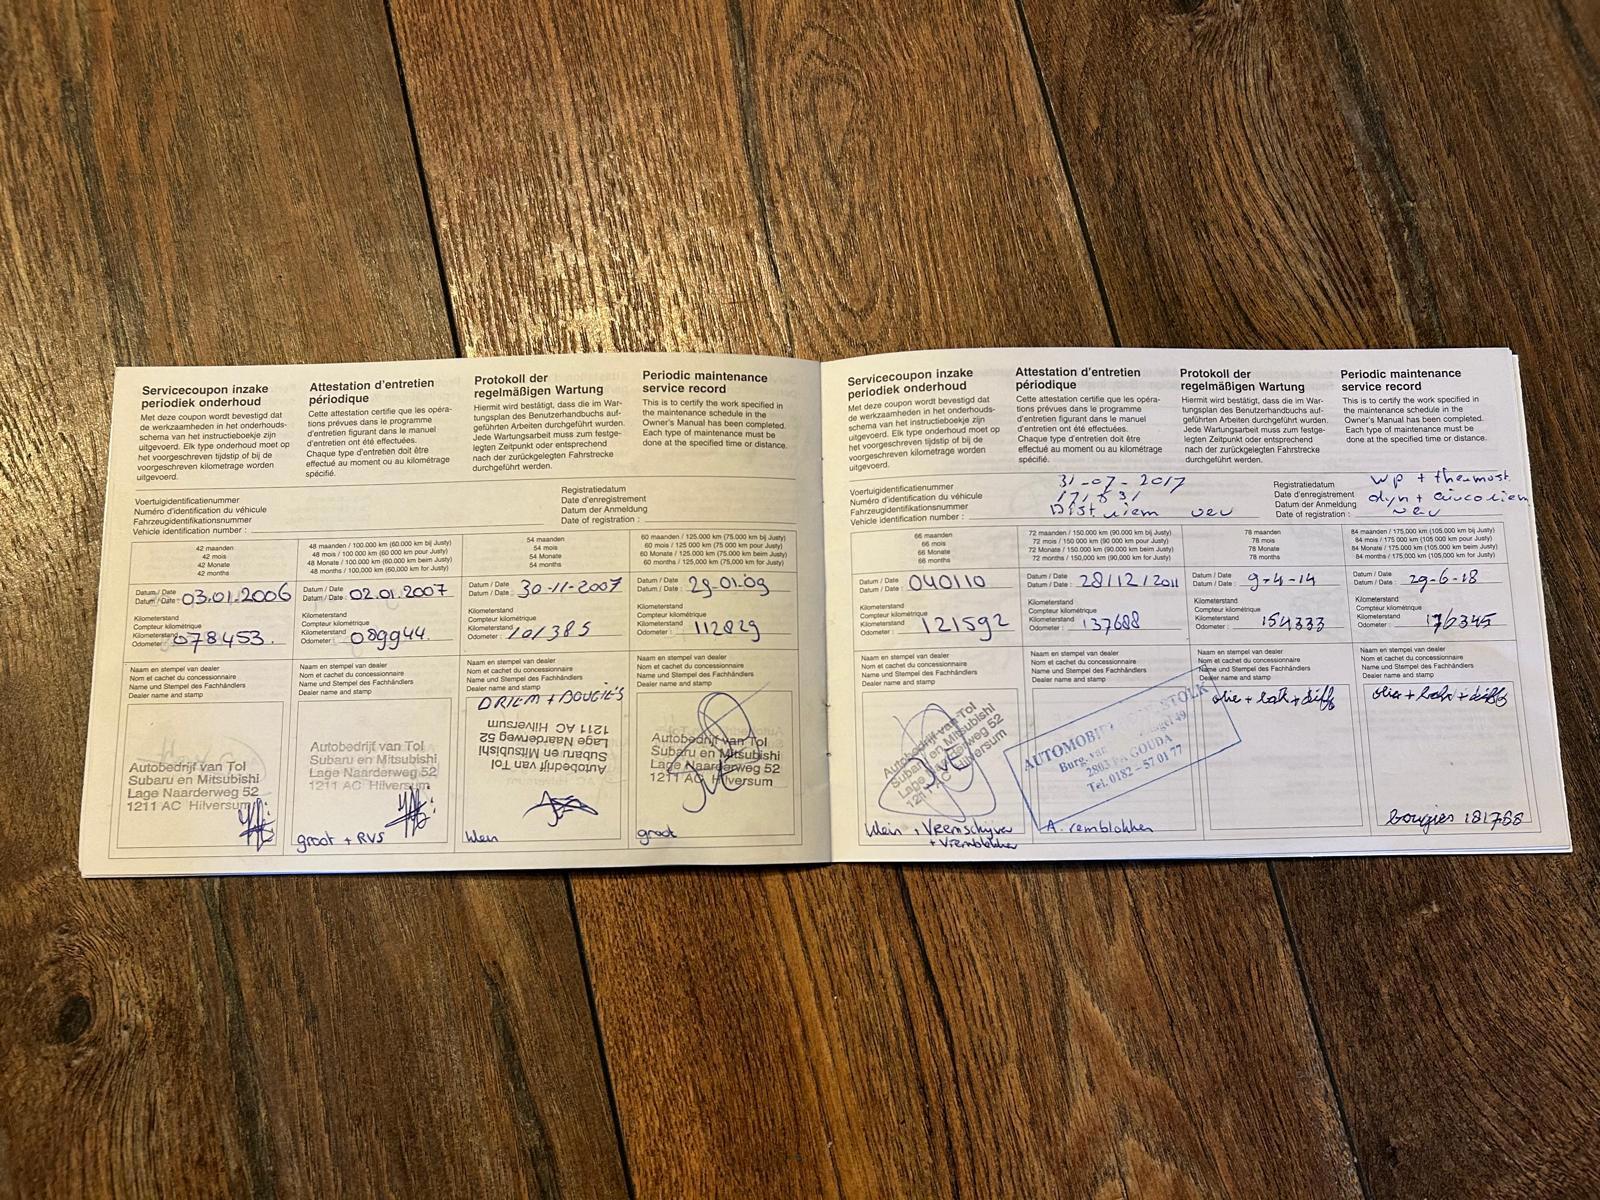 Servicecoupon inzake
periodiek onderhoud
Met deze coupon wordt bevestigd dat
de werkzaamheden in het onderhouds-
schema van het instructieboekje zijn
uitgevoerd. Elk type onderhoud moet op
het voorgeschreven tijdstip of bij de
voorgeschreven kilometrage worden
uitgevoerd.
Attestation d'entretien
périodique
Cette attestation certifie que les opéra-
tions prévues dans le programme
d'entretien figurant dans le manuel
d'entretien ont été effectuées.
Chaque type d'entretien doit être
effectué au moment ou au kilométrage
spécifié.
Protokoll der
regelmäßigen Wartung
Hiermit wird bestätigt, dass die im War-
tungsplan des Benutzerhandbuchs auf-
geführten Arbeiten durchgeführt wurden.
Jede Wartungsarbeit muss zum festge-
legten Zeitpunkt oder entsprechend
nach der zurückgelegten Fahrstrecke
durchgeführt werden.
Periodic maintenance
service record
This is to certify the work specified in
the maintenance schedule in the
Owner's Manual has been completed.
Each type of maintenance must be
done at the specified time or distance.
Voertuigidentificatienummer
Numéro d'identification du véhicule
Fahrzeugidentifikationsnummer
Vehicle identification number :
Registratiedatum
Date d'enregistrement
Datum der Anmeldung
Date of registration :
42 maanden
42 mois
42 Monate
42 months
Datum / Date
Datum / Date : 03.01.2006
Kilometerstand
Compteur kilométrique
Kilometerstand
Odometer : 078453.
Naam en stempel van dealer
Nom et cachet du concessionnaire
Name und Stempel des Fachhändlers
Dealer name and stamp
Autobedrijf van Tol
Subaru en Mitsubishi
Lage Naarderweg 52
1211 AC Hilversum
48 maanden / 100.000 km (60.000 km bij Justy)
48 mois / 100 000 km (60 000 km pour Justy)
48 Monate / 100 000 km (60 000 km beim Justy)
48 months / 100,000 km (60,000 km for Justy)
Datum / Date
Datum / Date : 02.01.2007
Kilometerstand
Compteur kilométrique
Kilometerstand
Odometer : 089944.
Naam en stempel van dealer
Nom et cachet du concessionnaire
Name und Stempel des Fachhändlers
Dealer name and stamp
Autobedrijf van Tol
Subaru en Mitsubishi
Lage Naarderweg 52
1211 AC Hilversum
groot + RVS
54 maanden
54 mois
54 Monate
54 months
Datum / Date
Datum / Date : 30-11-2007
Kilometerstand
Compteur kilométrique
Kilometerstand
Odometer : 101385
Naam en stempel van dealer
Nom et cachet du concessionnaire
Name und Stempel des Fachhändlers
Dealer name and stamp
DRIEM + BOUGIE'S
Autobedrijf van Tol
Subaru en Mitsubishi
Lage Naarderweg 52
1211 AC Hilversum
klein
60 maanden / 125.000 km (75.000 km bij Justy)
60 mois / 125 000 km (75 000 km pour Justy)
60 Monate / 125 000 km (75 000 km beim Justy)
60 months / 125,000 km (75,000 km for Justy)
Datum / Date
Datum / Date : 29.01.09
Kilometerstand
Compteur kilométrique
Kilometerstand
Odometer : 112829
Naam en stempel van dealer
Nom et cachet du concessionnaire
Name und Stempel des Fachhändlers
Dealer name and stamp
Autobedrijf van Tol
Subaru en Mitsubishi
Lage Naarderweg 52
1211 AC Hilversum
groot
Servicecoupon inzake
periodiek onderhoud
Met deze coupon wordt bevestigd dat
de werkzaamheden in het onderhouds-
schema van het instructieboekje zijn
uitgevoerd. Elk type onderhoud moet op
het voorgeschreven tijdstip of bij de
voorgeschreven kilometrage worden
uitgevoerd.
Attestation d'entretien
périodique
Cette attestation certifie que les opéra-
tions prévues dans le programme
d'entretien figurant dans le manuel
d'entretien ont été effectuées.
Chaque type d'entretien doit être
effectué au moment ou au kilométrage
spécifié.
Protokoll der
regelmäßigen Wartung
Hiermit wird bestätigt, dass die im War-
tungsplan des Benutzerhandbuchs auf-
geführten Arbeiten durchgeführt wurden.
Jede Wartungsarbeit muss zum festge-
legten Zeitpunkt oder entsprechend
nach der zurückgelegten Fahrstrecke
durchgeführt werden.
Periodic maintenance
service record
This is to certify the work specified in
the maintenance schedule in the
Owner's Manual has been completed.
Each type of maintenance must be
done at the specified time or distance.
Voertuigidentificatienummer
Numéro d'identification du véhicule
Fahrzeugidentifikationsnummer
Vehicle identification number :
31-07-2017
Dist riem
Registratiedatum
Date d'enregistrement
Datum der Anmeldung
Date of registration :
wp + thermost.
dyn + aircoriem
66 maanden
66 mois
66 Monate
66 months
Datum / Date
Datum / Date : 040110
Kilometerstand
Compteur kilométrique
Kilometerstand
Odometer : 121592
Naam en stempel van dealer
Nom et cachet du concessionnaire
Name und Stempel des Fachhändlers
Dealer name and stamp
Autobedrijf van Tol
Subaru en Mitsubishi
Lage Naarderweg 52
1211 AC Hilversum
klein + Vremschijven
+ Vremblokken
72 maanden / 150.000 km (90.000 km bij Justy)
72 mois / 150 000 km (90 000 km pour Justy)
72 Monate / 150 000 km (90 000 km beim Justy)
72 months / 150,000 km (90,000 km for Justy)
Datum / Date
Datum / Date : 28/12/2011
Kilometerstand
Compteur kilométrique
Kilometerstand
Odometer : 137688
Naam en stempel van dealer
Nom et cachet du concessionnaire
Name und Stempel des Fachhändlers
Dealer name and stamp
STOLK
Burg.
GOUDA
Tel. 0182 - 57 01 77
A. remblokken
78 maanden
78 mois
78 Monate
78 months
Datum / Date
Datum / Date : 9-4-14
Kilometerstand
Compteur kilométrique
Kilometerstand
Odometer : 154333
Naam en stempel van dealer
Nom et cachet du concessionnaire
Name und Stempel des Fachhändlers
Dealer name and stamp
olie + bak + diffs
84 maanden / 175.000 km (105.000 km bij Justy)
84 mois / 175 000 km (105 000 km pour Justy)
84 Monate / 175 000 km (105 000 km beim Justy)
84 months / 175,000 km (105,000 km for Justy)
Datum / Date
Datum / Date : 29-6-18
Kilometerstand
Compteur kilométrique
Kilometerstand
Odometer : 176345
Naam en stempel van dealer
Nom et cachet du concessionnaire
Name und Stempel des Fachhändlers
Dealer name and stamp
olie + bak + diffs
bougies 181788